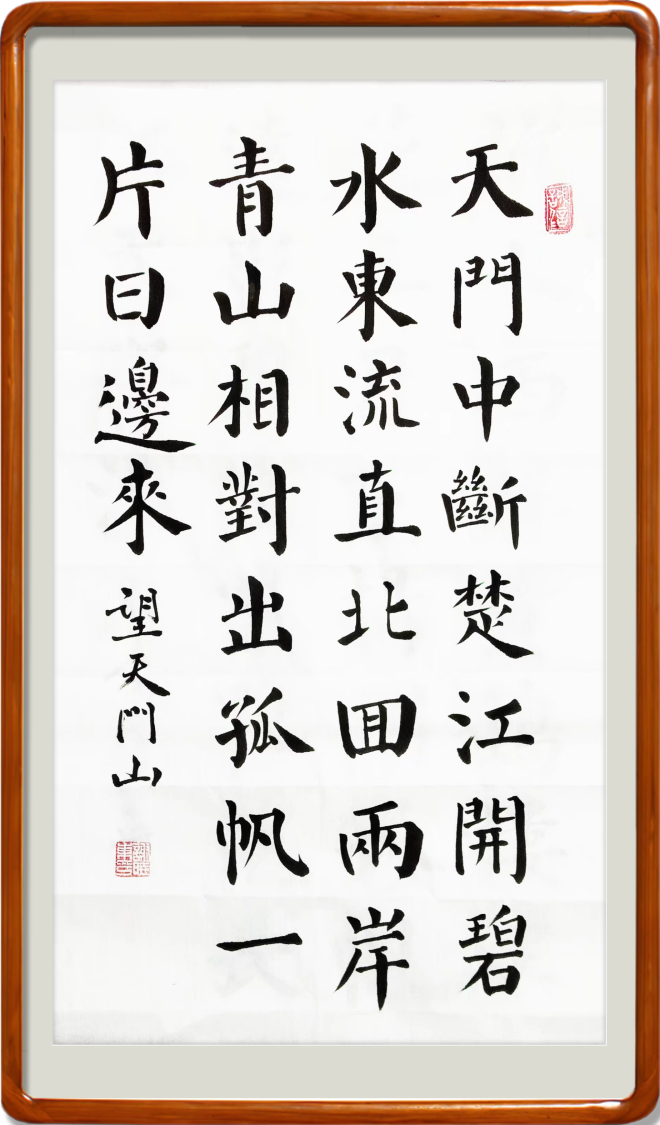 天門中斷楚江開碧
水東流直北囬兩岸
青山相對出孤帆一
片日邊來 望天門山